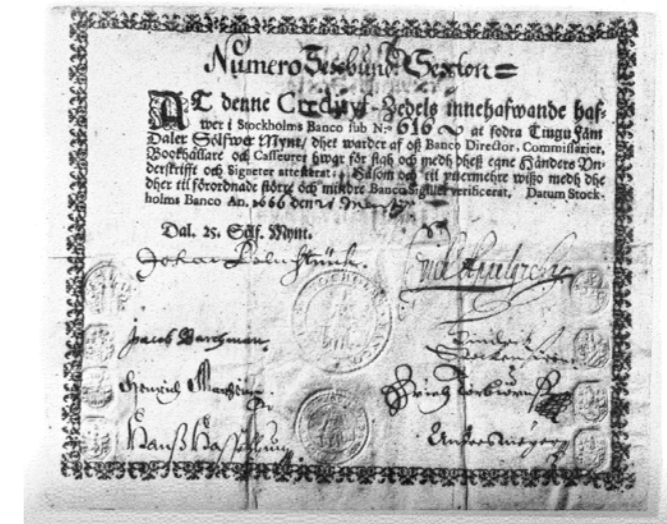 Numero Sexhund: Sexton =
AT denne Creditijf-Zedels innehafwande haf-
wer i Stockholms Banco sub N:o 616 at fodra Tiugu Fäm
Daler Sölfwer Mynt / dhet warder af oß Banco Director, Commissarier,
Bookhållare och Casseurer hwar för sigh och medh dheß egne Händers Vn-
derskrifft och Signeter attesterat; Såsom och til ytermehre wißo medh dhe
dher til förordnade större och mindre Banco Sigiller verificerat, Datum Stock-
holms Banco An. 1666 den
Dal. 25. Sölf. Mynt.
Jacob
Hinrich
Erich
Hanß
Anders